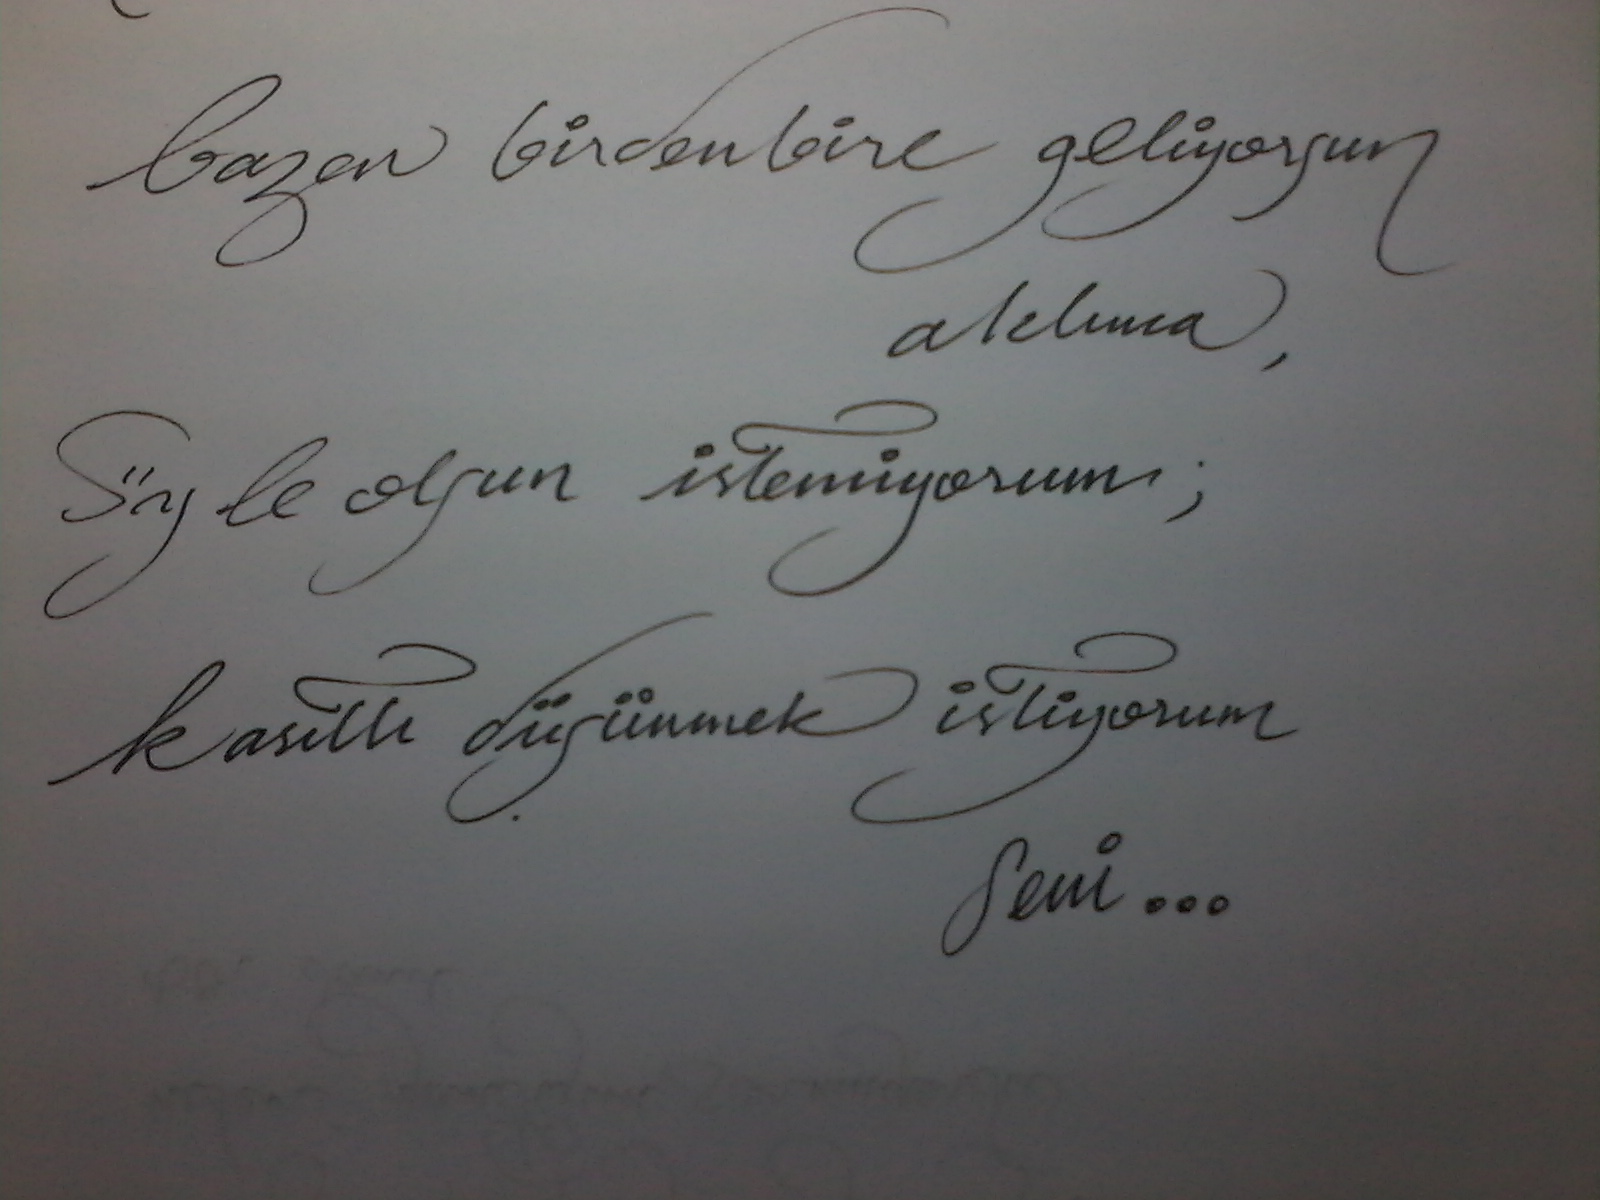 bazen birdenbire geliyorsun
aklıma,
Öyle olsun istemiyorum;
kasıtlı düşünmek istiyorum
seni...